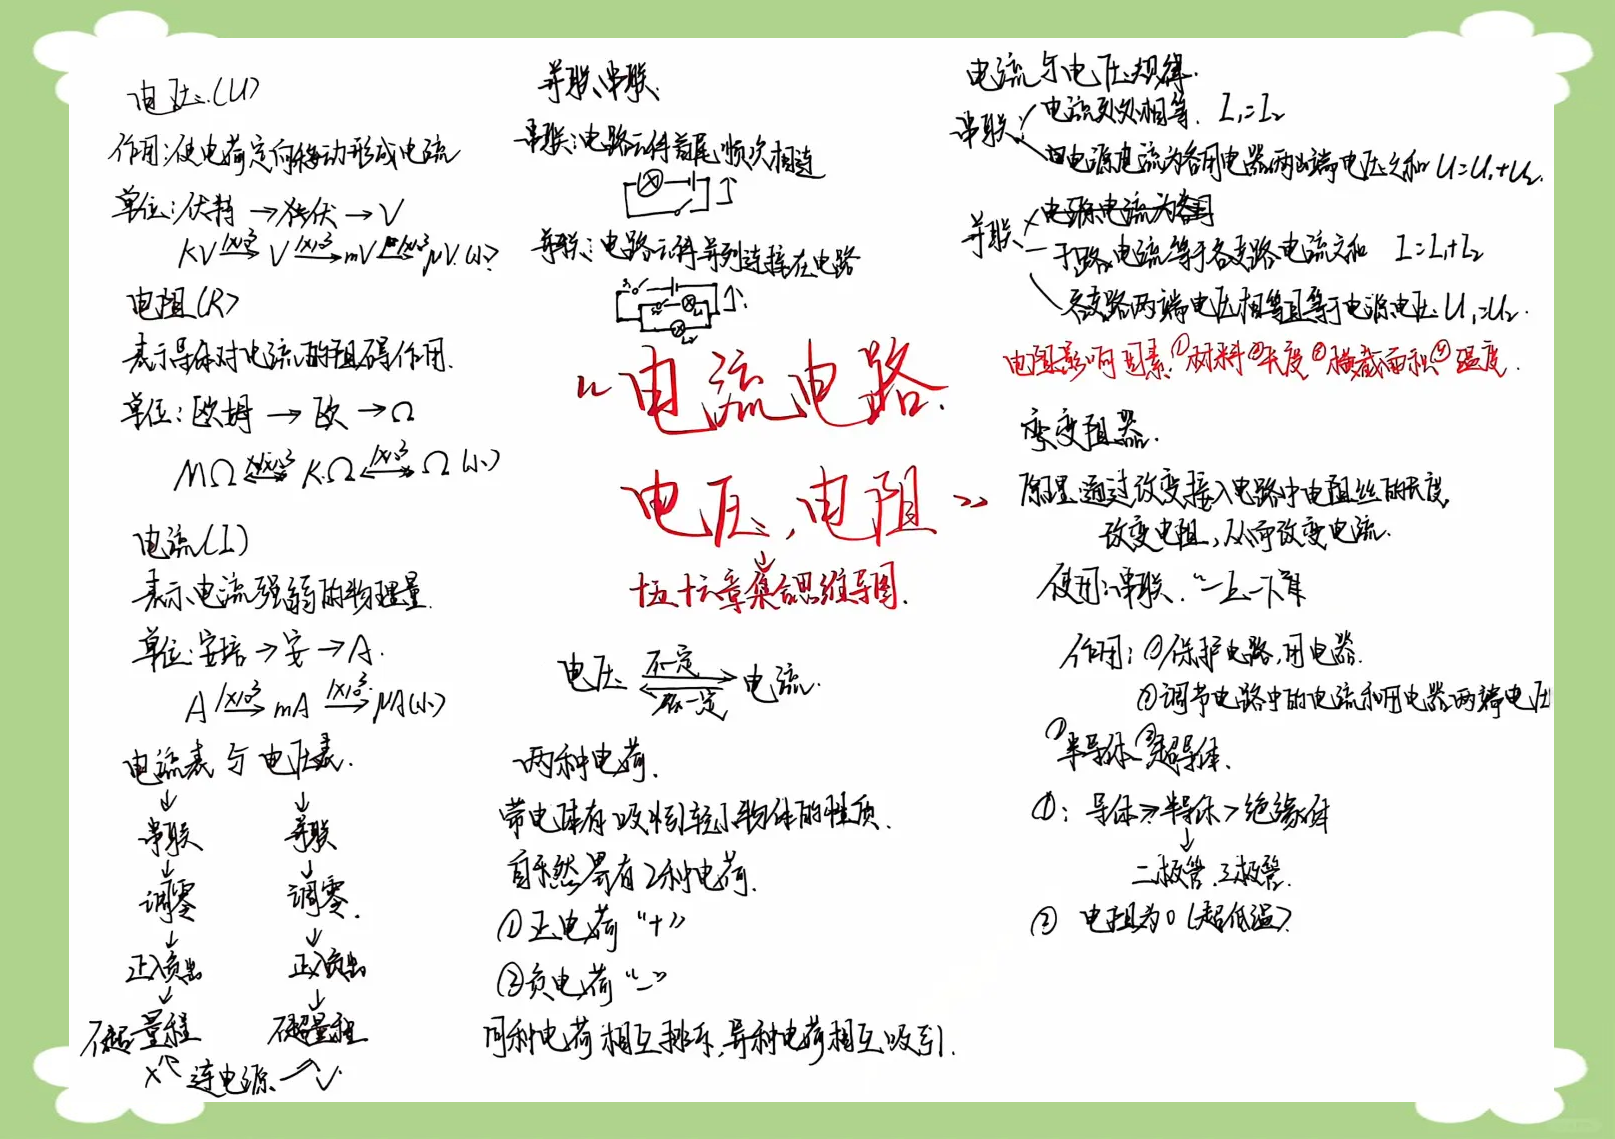 电压(U)
作用:使电荷定向移动形成电流
单位:伏特→伏→V
KV 1×10³→ V 1×10³→ mV 1×10³→ μV(小)
电阻(R)
表示导体对电流的阻碍作用.
单位:欧姆→欧→Ω
MΩ 1×10³↔ KΩ 1×10³↔ Ω(小)
电流(I)
表示电流强弱的物理量.
单位:安培→安→A.
A 1×10³→ mA 1×10³→ μA(小)
电流表与电压表.
↓ ↓
串联 并联
↓ ↓
调零 调零.
↓ ↓
正入负出 正入负出
↓ ↓
不超量程 不超量程
× 连电源 √
并联、串联.
串联:电路元件首尾顺次相连
并联:电路元件并列连接在电路
S₂ L₁
L₂
“电流电路.
电压,电阻”
↓
十五十六章集合思维导图.
电压 不一定→ 电流.
←一定
两种电荷.
带电体有吸引轻小物体的性质.
自然界有2种电荷.
①正电荷“+”
②负电荷“-”
同种电荷相互排斥,异种电荷相互吸引.
电流与电压规律.
串联: 电流处处相等. I₁=I₂
电源电流为各用电器两端电压之和 U=U₁+U₂.
并联 电源电流为
干路电流等于各支路电流之和 I=I₁+I₂
各支路两端电压相等且等于电源电压 U₁=U₂.
电阻影响因素:①材料②长度③横截面积④温度.
变变阻器.
原理:通过改变接入电路中电阻丝的长度,
改变电阻,从而改变电流.
使用:串联.“一上一下”
作用:①保护电路,用电器.
②调节电路中的电流和用电器两端电压
①半导体 ②超导体.
①:导体>半导体>绝缘体
↓
二极管.三极管.
② 电阻为0(超低温).